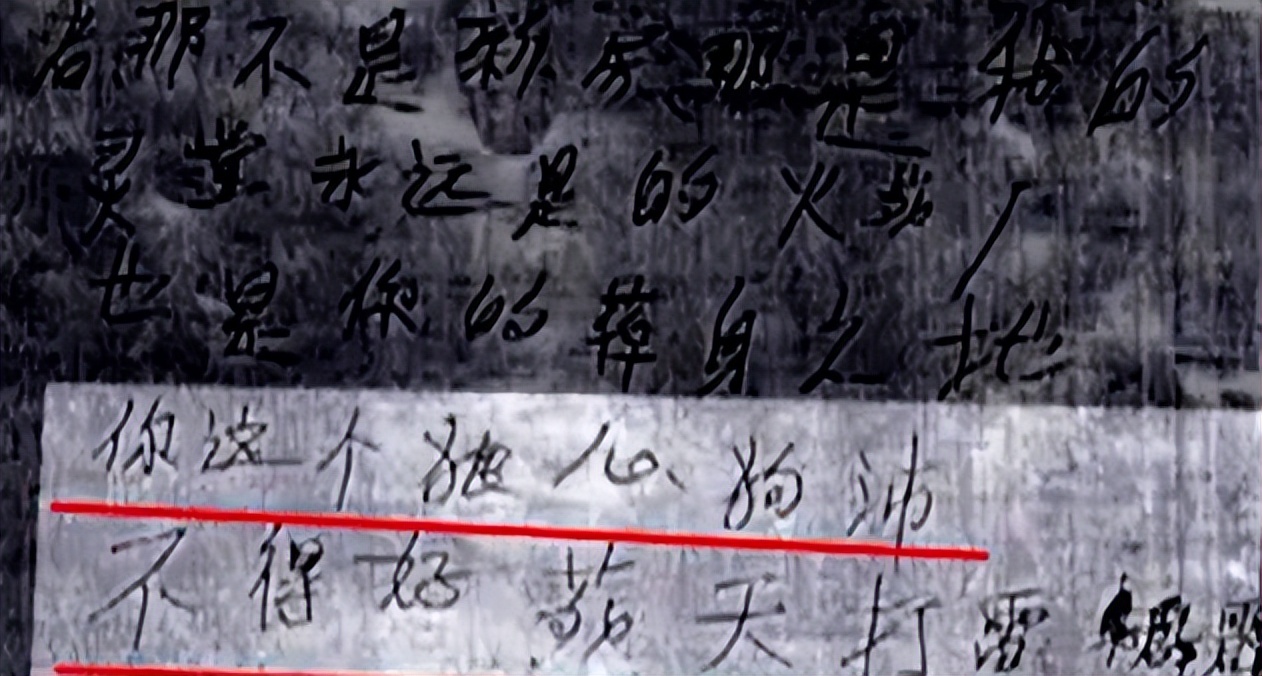 若那不是新房那是我的
灵堂永远是的火葬厂
也是你的葬身之地
你这个狼心狗沛
不得好葬天打雷